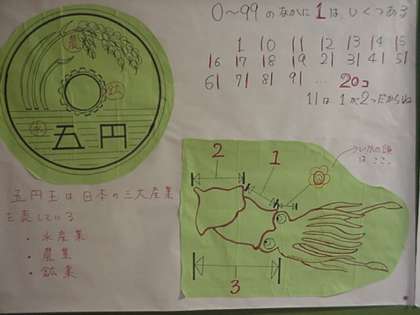 0〜99のなかに1は、いくつある
1 10 11 12 13 14 15
16 17 18 19 21 31 41 51
61 71 81 91 … 20コ
11は1が2つだからね
農
鉱
水
五円
五円玉は日本の三大産業
を表している
・水産業
・農業
・鉱業
2
1
3
の頭
はここ。